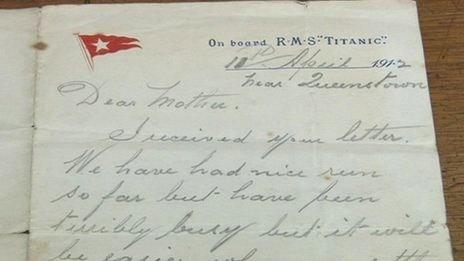 On board R·M·S "TITANIC".
April 1912
near Queenstown
Dear Mother.
I received your letter.
We have had nice run
so far but have been
terribly busy but it will
be easier